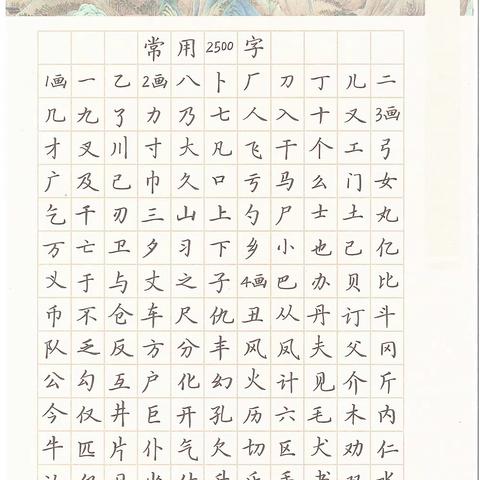 常用2500字
1画一乙2画八卜厂刀丁儿二
几九了力乃七人入十又3画
才叉川寸大凡飞干个工弓
广及己巾久口亏马么门女
乞千刃三山上勺尸士土丸
万亡卫夕习下乡小也已亿
义于与丈之子4画巴办贝比
币不仓车尺仇丑从丹订斗
队乏反方分丰风凤夫父冈
公勾互户化幻火计见介斤
今仅井巨开孔历六毛木内
牛匹片仆气欠切区犬劝仁